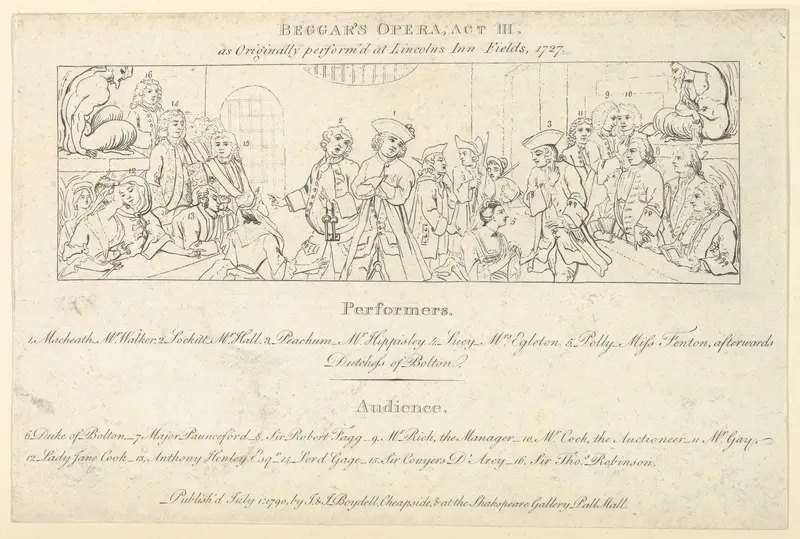 BEGGAR'S OPERA, ACT III.
as Originally perform'd at Lincolns Inn Fields, 1727.
16
14
15
12
13
2
1
4
3
11
9
10
8
7
6
5
Performers.
1, Macheath Mr. Walker. 2_Lockitt Mr. Hall. 3_Peachum_Mr. Hippisley 4_Lucy_Mrs. Egleton. 5_Polly_Miss Fenton, afterwards
Dutchess of Bolton.
Audience.
6 Duke of Bolton_7 Major Paunceford_8, Sir Robert Fagg_9, Mr. Rich, the Manager_10, Mr. Cock, the Auctioneer_11 Mr. Gay,
12_Lady Jane Cook_13, Anthony Henley Esqr. 14_Lord Gage_15, Sir Conyers D'Arcy_16, Sir Thos. Robinson.
Publish'd July 1: 1790, by J. & J. Boydell, Cheapside, & at the Shakspeare Gallery Pall Mall.